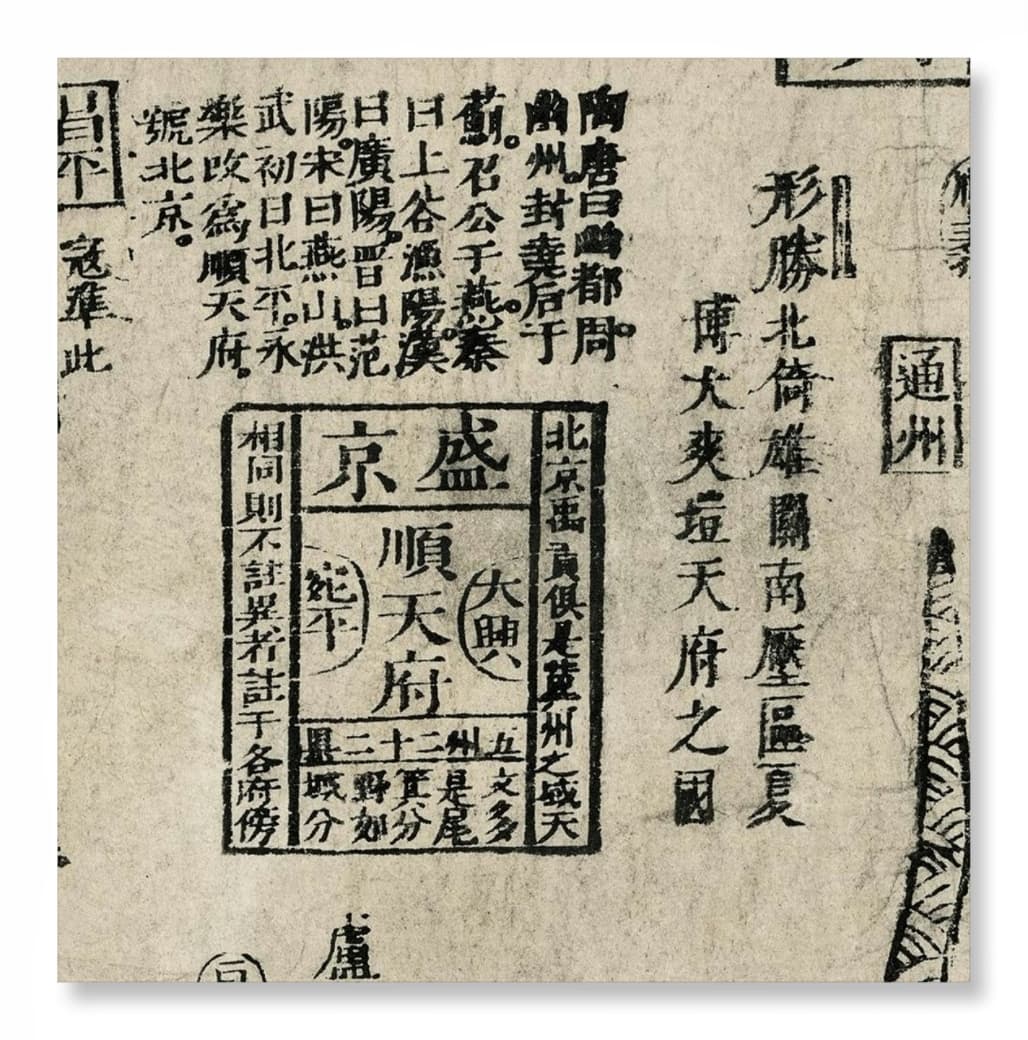 形勝北倚雄關南壓區夏
博大爽塏天府之國
通州
陶唐曰幽都周
幽州封堯后于
薊召公于燕秦
曰上谷漁陽漢
曰廣陽晋曰范
陽宋曰燕山洪
武初曰北平永
樂改為順天府
號北京
昌平
寇準此
盛京
順天府
大興
宛平
五州二十二縣
北京禹貢俱是冀州之域天
文多
是尾
箕分
野如
城分
相同則不註異者註于各府傍
盧